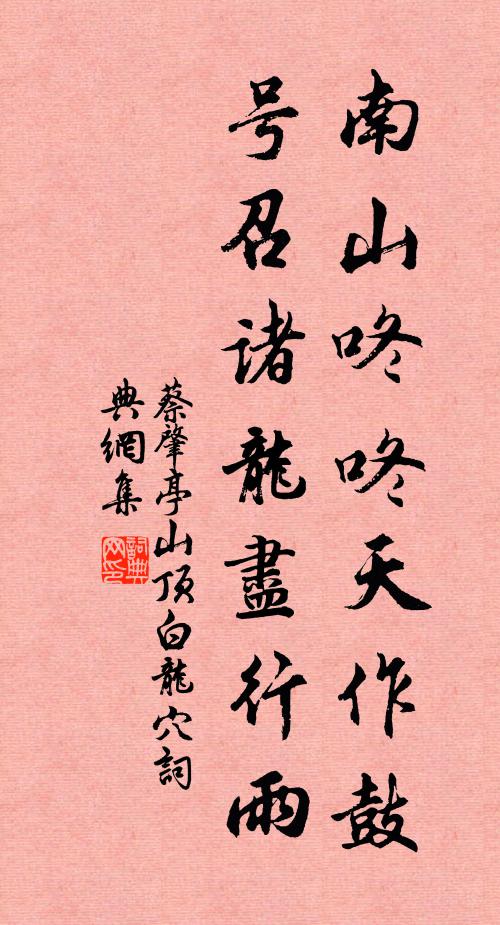 南山咚咚天作鼓
号召诸龍盡行雨
蔡肇亭山顶白龍穴詞
典網集
詞典网印